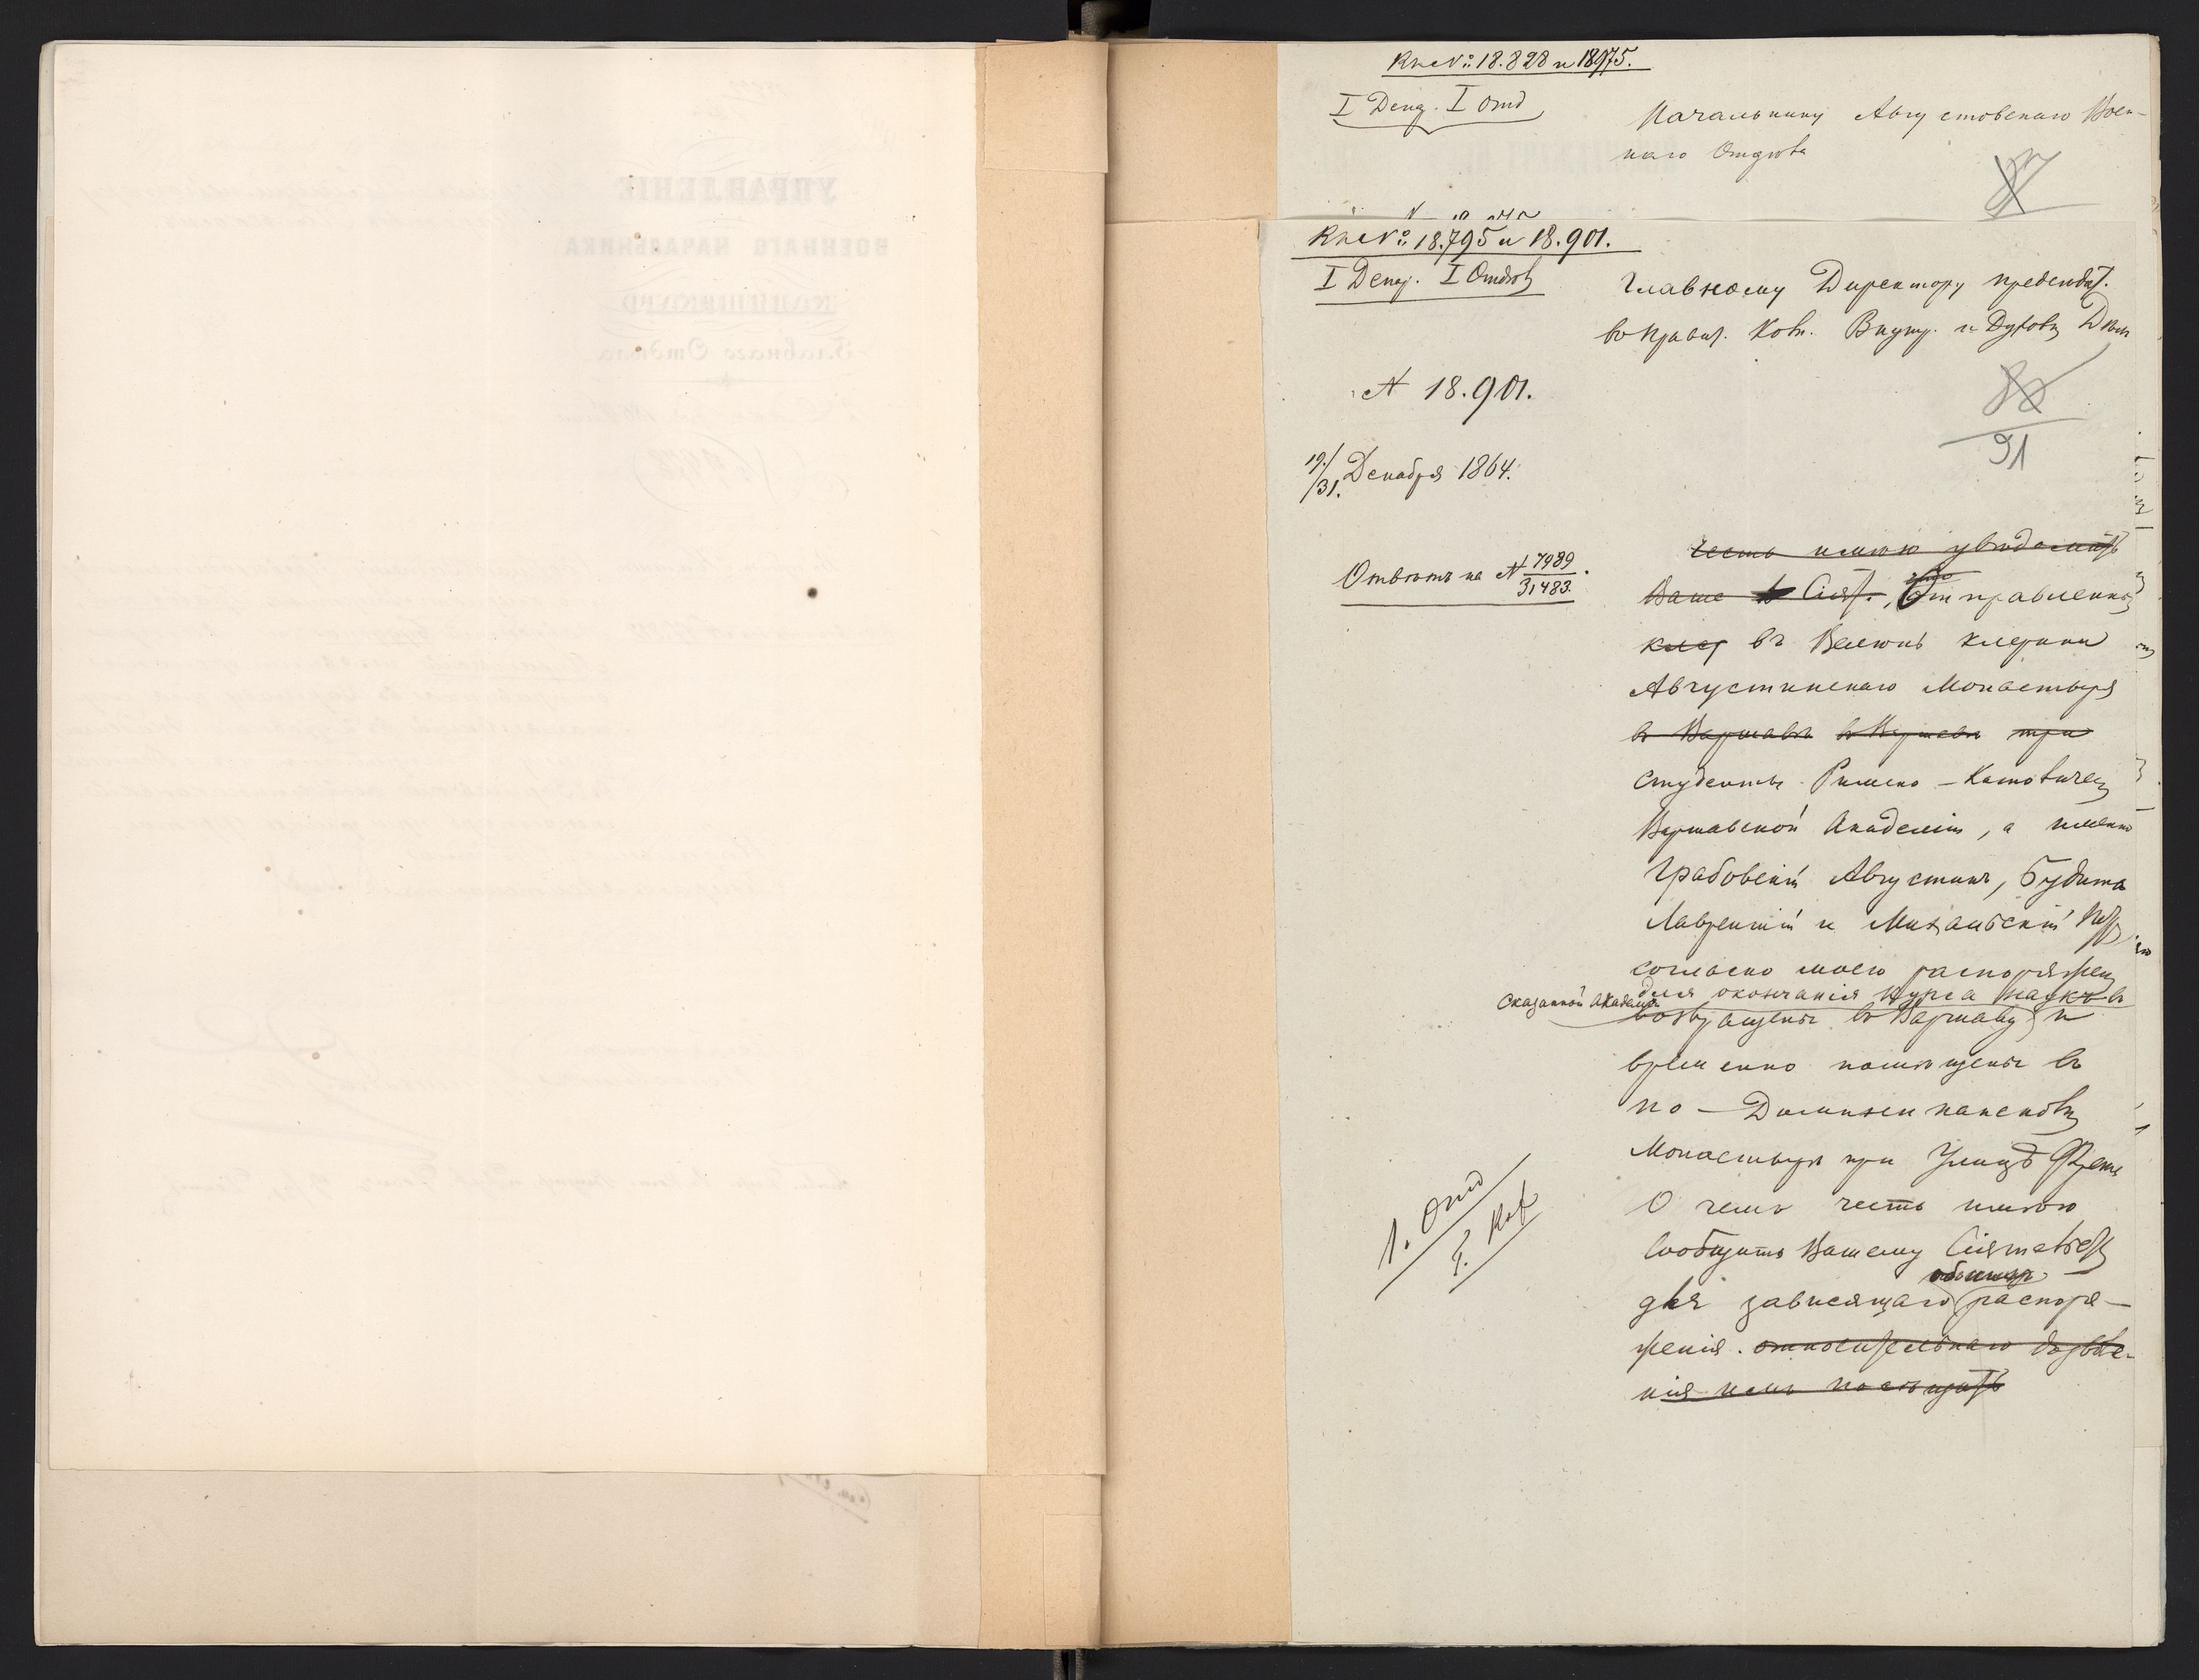 Къ № 18.828 и 18975.
I Деп. I Отд
Начальнику Августовскаго Воен-
наго Отдѣла
87
Къ № 18.795 и 18.901.
I Деп. I Отдѣл
Главному Директору предсѣдат.
въ Правит. Ком. Внутр. и Духовн Дѣлъ
№ 18.901.
82
91
19/31. Декабря 1864.
Отвѣтъ на № 7989/31483.
Честь имѣю увѣдомить
Ваше Сіят., Отправленные
въ Велюнь клерики
Августинскаго Монастыря
въ Варшавѣ въ Варшавѣ три
студенты Римско-Католическ
Варшавской Академіи, а именно
Грабовскій Августинъ, Будита
Лаврентій и Михальскій
согласно моего распоряжен
для окончанія курса наукъ въ
сказанной Академіи
возвращены въ Варшаву и
временно помѣщены въ
по-Доминиканскомъ
Монастырѣ при Улицѣ Фрета
О чемъ честь имѣю
Сообщить Вашему Сіятельст
для зависящаго распоря-
женія. относительнаго дозволе-
нія имъ посѣщать
1. Отд
УПРАВЛЕНІЕ
ВОЕННАГО НАЧАЛЬНИКА
КАЛИШСКАГО
Главнаго Отдѣла